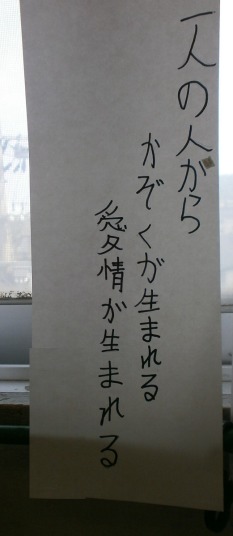 一人の人から
かぞくが生まれる
愛情が生まれる